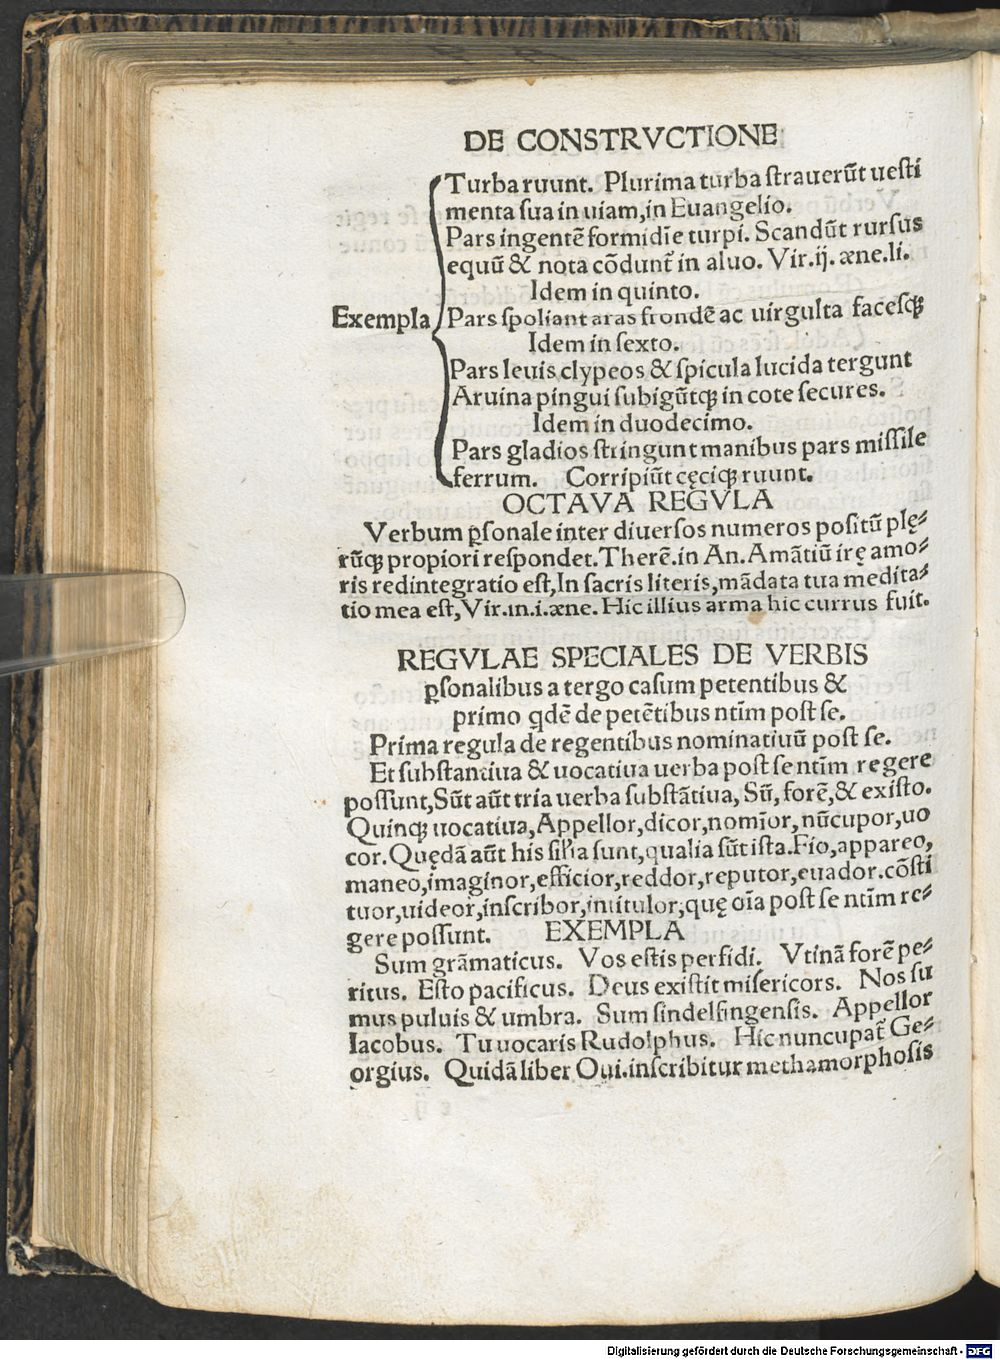 DE CONSTRVCTIONE
Turba ruunt. Plurima turba strauerūt uesti
menta sua in uiam, in Euangelio.
Pars ingentē formidīe turpi. Scandūt rursus
equū & nota cōdunt᷑ in aluo. Vir.ij. æne.li.
Idem in quinto.
Exempla Pars spoliant aras frondē ac uirgulta facesqꝫ
Idem in sexto.
Pars leuis clypeos & spicula lucida tergunt
Aruina pingui subigūtqꝫ in cote secures.
Idem in duodecimo.
Pars gladios stringunt manibus pars missile
ferrum. Corripiūt cęciqꝫ ruunt.
OCTAVA REGVLA
Verbum ꝑsonale inter diuersos numeros positū plę⸗
rūqꝫ propiori respondet. Therē.in An. Amātiū irę amo⸗
ris redintegratio est, In sacris literis, mādata tua medita⸗
tio mea est, Vir.in.i.æne. Hic illius arma hic currus fuit.
REGVLAE SPECIALES DE VERBIS
ꝑsonalibus a tergo casum petentibus &
primo qdē de petētibus ntīm post se.
Prima regula de regentibus nominatiuū post se.
Et substantiua & uocatiua uerba post se ntīm regere
possunt, Sūt aūt tria uerba substātiua, Sū, forē, & existo.
Quinqꝫ uocatiua, Appellor, dicor, nomīor, nūcupor, uo
cor. Quędā aūt his silīa sunt, qualia sūt ista. Fio, appareo,
maneo, imaginor, efficior, reddor, reputor, euador. cōsti
tuor, uideor, inscribor, intitulor, quę oīa post se ntīm re⸗
gere possunt. EXEMPLA
Sum grāmaticus. Vos estis perfidi. Vtinā forē pe⸗
ritus. Esto pacificus. Deus existit misericors. Nos su
mus puluis & umbra. Sum sindelfingensis. Appellor
Iacobus. Tu uocaris Rudolphus. Hic nuncupat᷑ Ge⸗
orgius. Quidā liber Oui. inscribitur methamorphosis
Digitalisierung gefördert durch die Deutsche Forschungsgemeinschaft - DFG